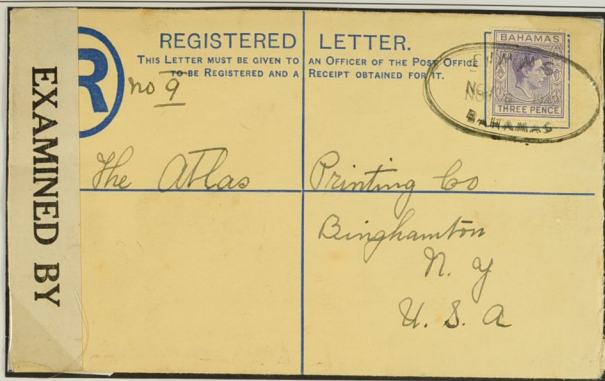 REGISTERED LETTER.
THIS LETTER MUST BE GIVEN TO AN OFFICER OF THE POST OFFICE
TO BE REGISTERED AND A RECEIPT OBTAINED FOR IT.
R
no 9
BAHAMAS
THREE PENCE
BAHAMAS
EXAMINED BY
The Atlas Printing Co
Binghamton
N. Y
U. S. A